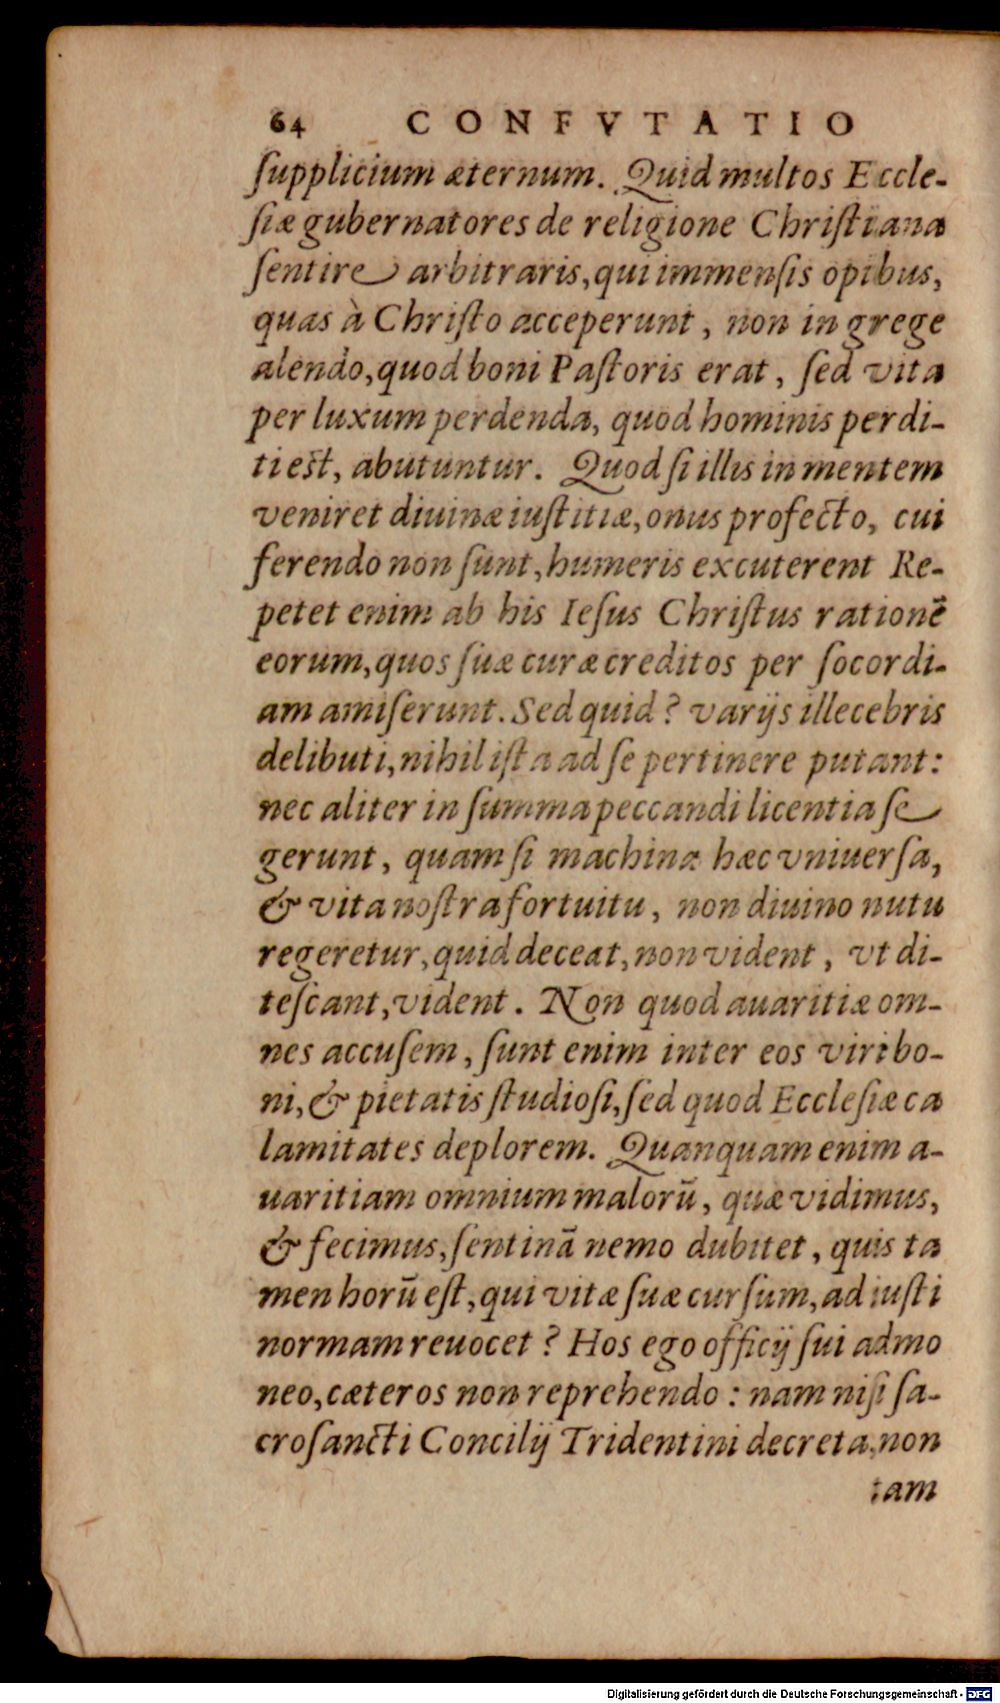 64 CONFVTATIO
ſupplicium æternum. Quid multos Eccle-
ſiæ gubernatores de religione Chriſtiana
ſentire arbitraris, qui immenſis opibus,
quas à Chriſto acceperunt, non in grege
alendo, quod boni Paſtoris erat, ſed vita
per luxum perdenda, quod hominis perdi-
ti eſt, abutuntur. Quod ſi illis in mentem
veniret diuinæ iuſtitiæ, onus profecto, cui
ferendo non ſunt, humeris excuterent Re-
petet enim ab his Ieſus Chriſtus rationē
eorum, quos ſuæ curæ creditos per ſocordi-
am amiſerunt. Sed quid? varijs illecebris
delibuti, nihil iſta ad ſe pertinere putant:
nec aliter in ſumma peccandi licentia ſe
gerunt, quam ſi machina hæc vniuerſa,
& vita noſtra fortuitu, non diuino nutu
regeretur, quid deceat, non vident, vt di-
teſcant, vident. Non quod auaritiæ om-
nes accuſem, ſunt enim inter eos viri bo-
ni, & pietatis ſtudioſi, ſed quod Eccleſiæ ca
lamitates deplorem. Quanquam enim a-
uaritiam omnium malorū, quæ vidimus,
& fecimus, ſentinā nemo dubitet, quis ta
men horū eſt, qui vitæ ſuæ curſum, ad iuſti
normam reuocet? Hos ego officij ſui admo
neo, cæteros non reprehendo: nam niſi ſa-
croſancti Concilij Tridentini decreta, non
tam
Digitalisierung gefördert durch die Deutsche Forschungsgemeinschaft - DFG